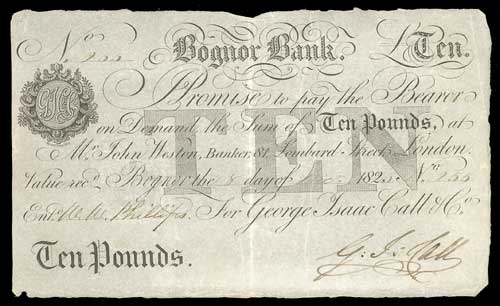 No 255 Bognor Bank. £ Ten.
Promise to pay the Bearer
on Demand the Sum of Ten Pounds, at
Mr. John Weston, Banker, 81, Lombard Street, London.
Value recd. Bognor the day of 182 No 255
Entd. Phillips. For George Isaac Call & Co.
Ten Pounds. G. I. Call
TEN